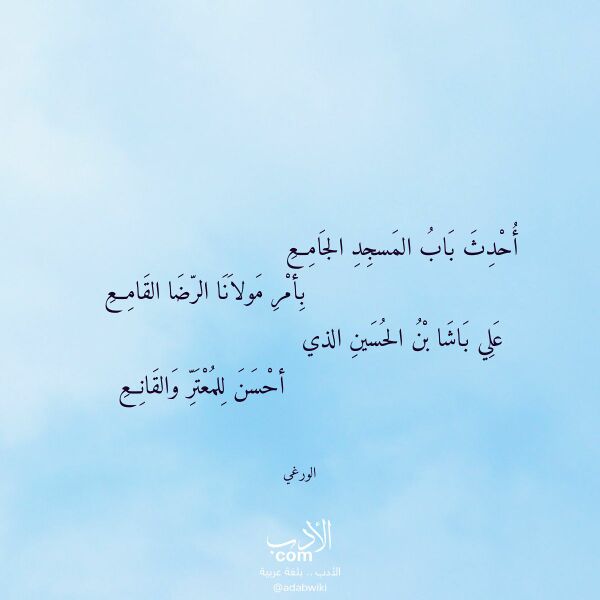 أُحْدِثَ بَابُ المَسجِدِ الجَامِـعِ
بِأمْرِ مَولاَنَا الرّضَا القَامِـعِ
عَلِي بَاشَا بْنُ الحُسَينِ الذي
أحْسَنَ لِلمُعْتَرِّ وَالقَانِـعِ
الورغي
الأدب
com
الأدب .. بلغة عربية
@adabwiki